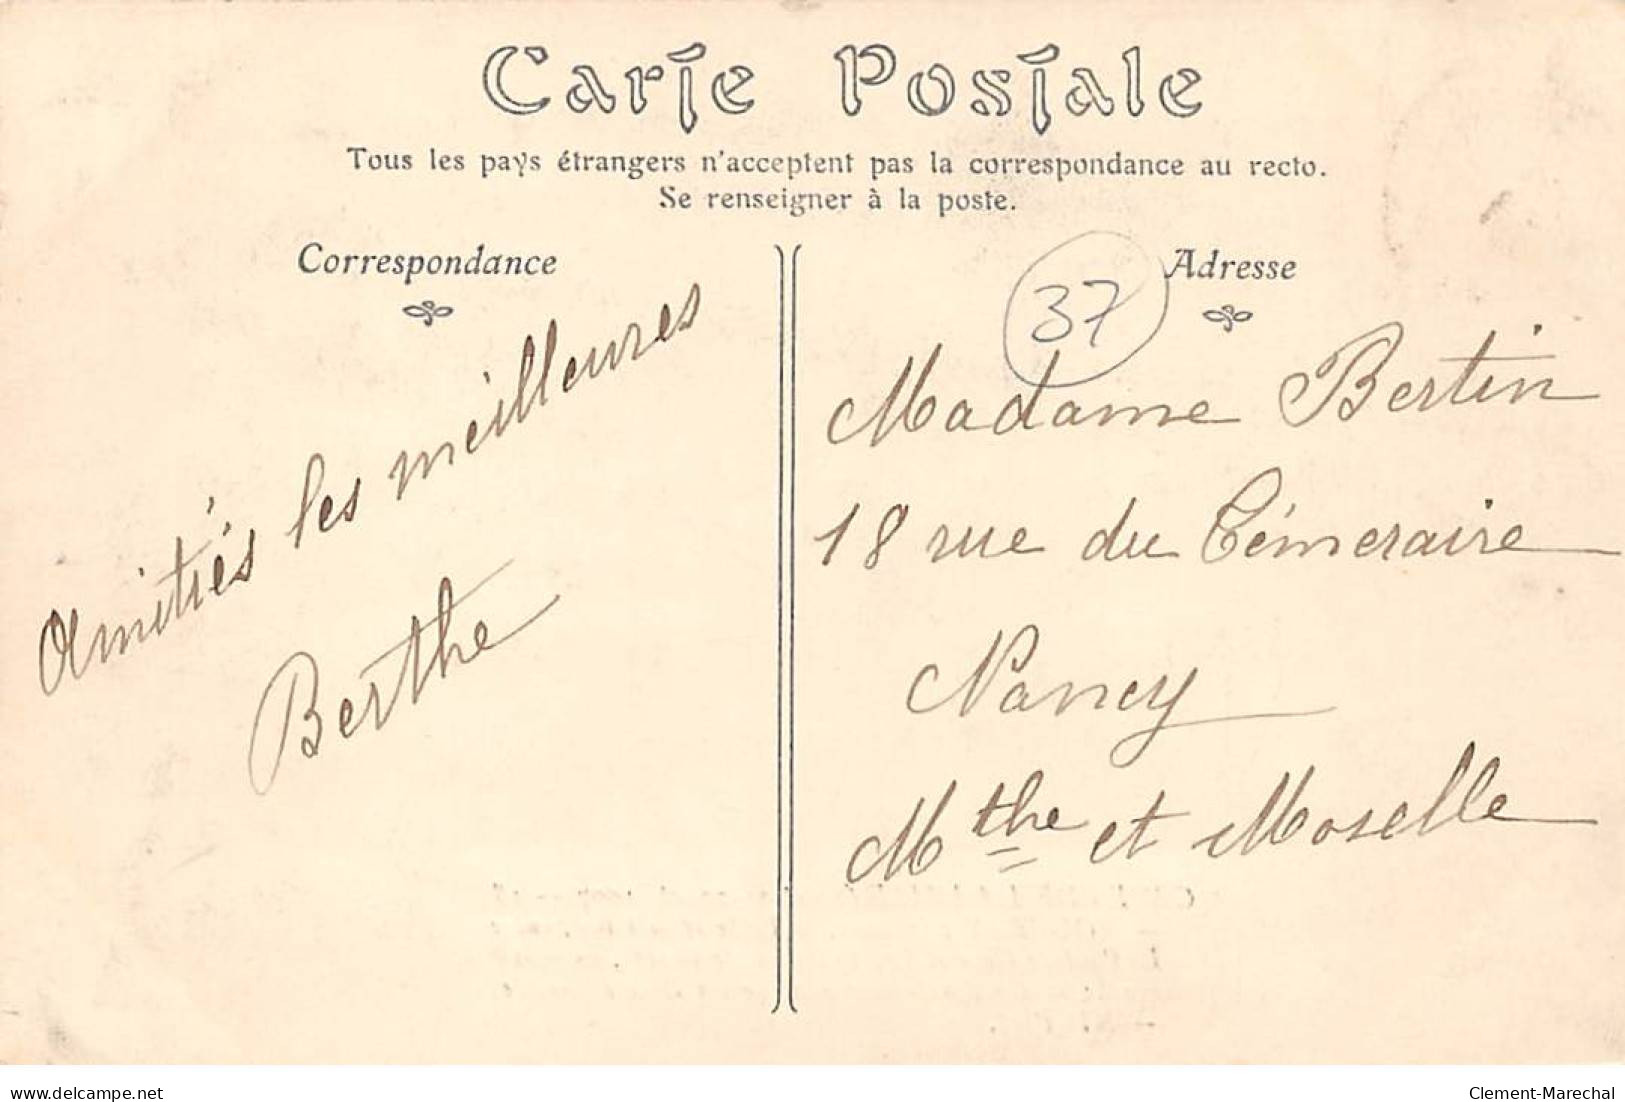 Carte Postale
Tous les pays étrangers n'acceptent pas la correspondance au recto.
Se renseigner à la poste.
Correspondance
Adresse
37
Amitiés les meilleures
Berthe
Madame Bertin
18 rue du Témeraire
Nancy
Mthe et Moselle
delcampe.net
Clement-Marechal